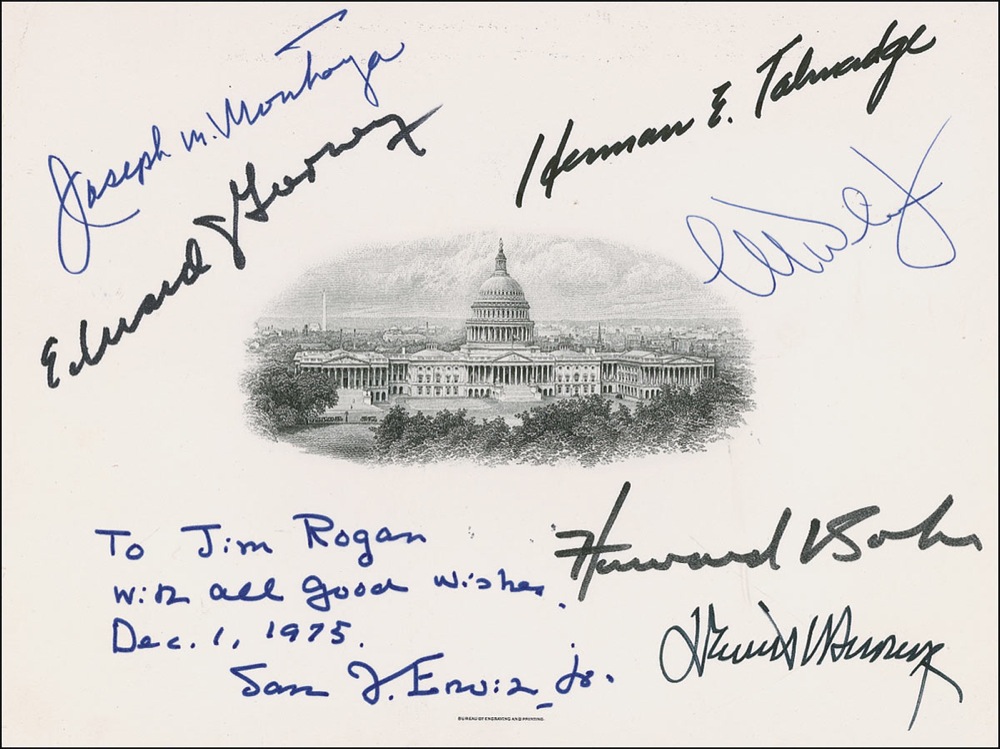 Joseph M. Montoya
Edward J Gurney
Herman E. Talmadge
To Jim Rogan
with all good wishes.
Dec. 1, 1975.
Sam J. Ervin, Jr.
Howard Baker
BUREAU OF ENGRAVING AND PRINTING.